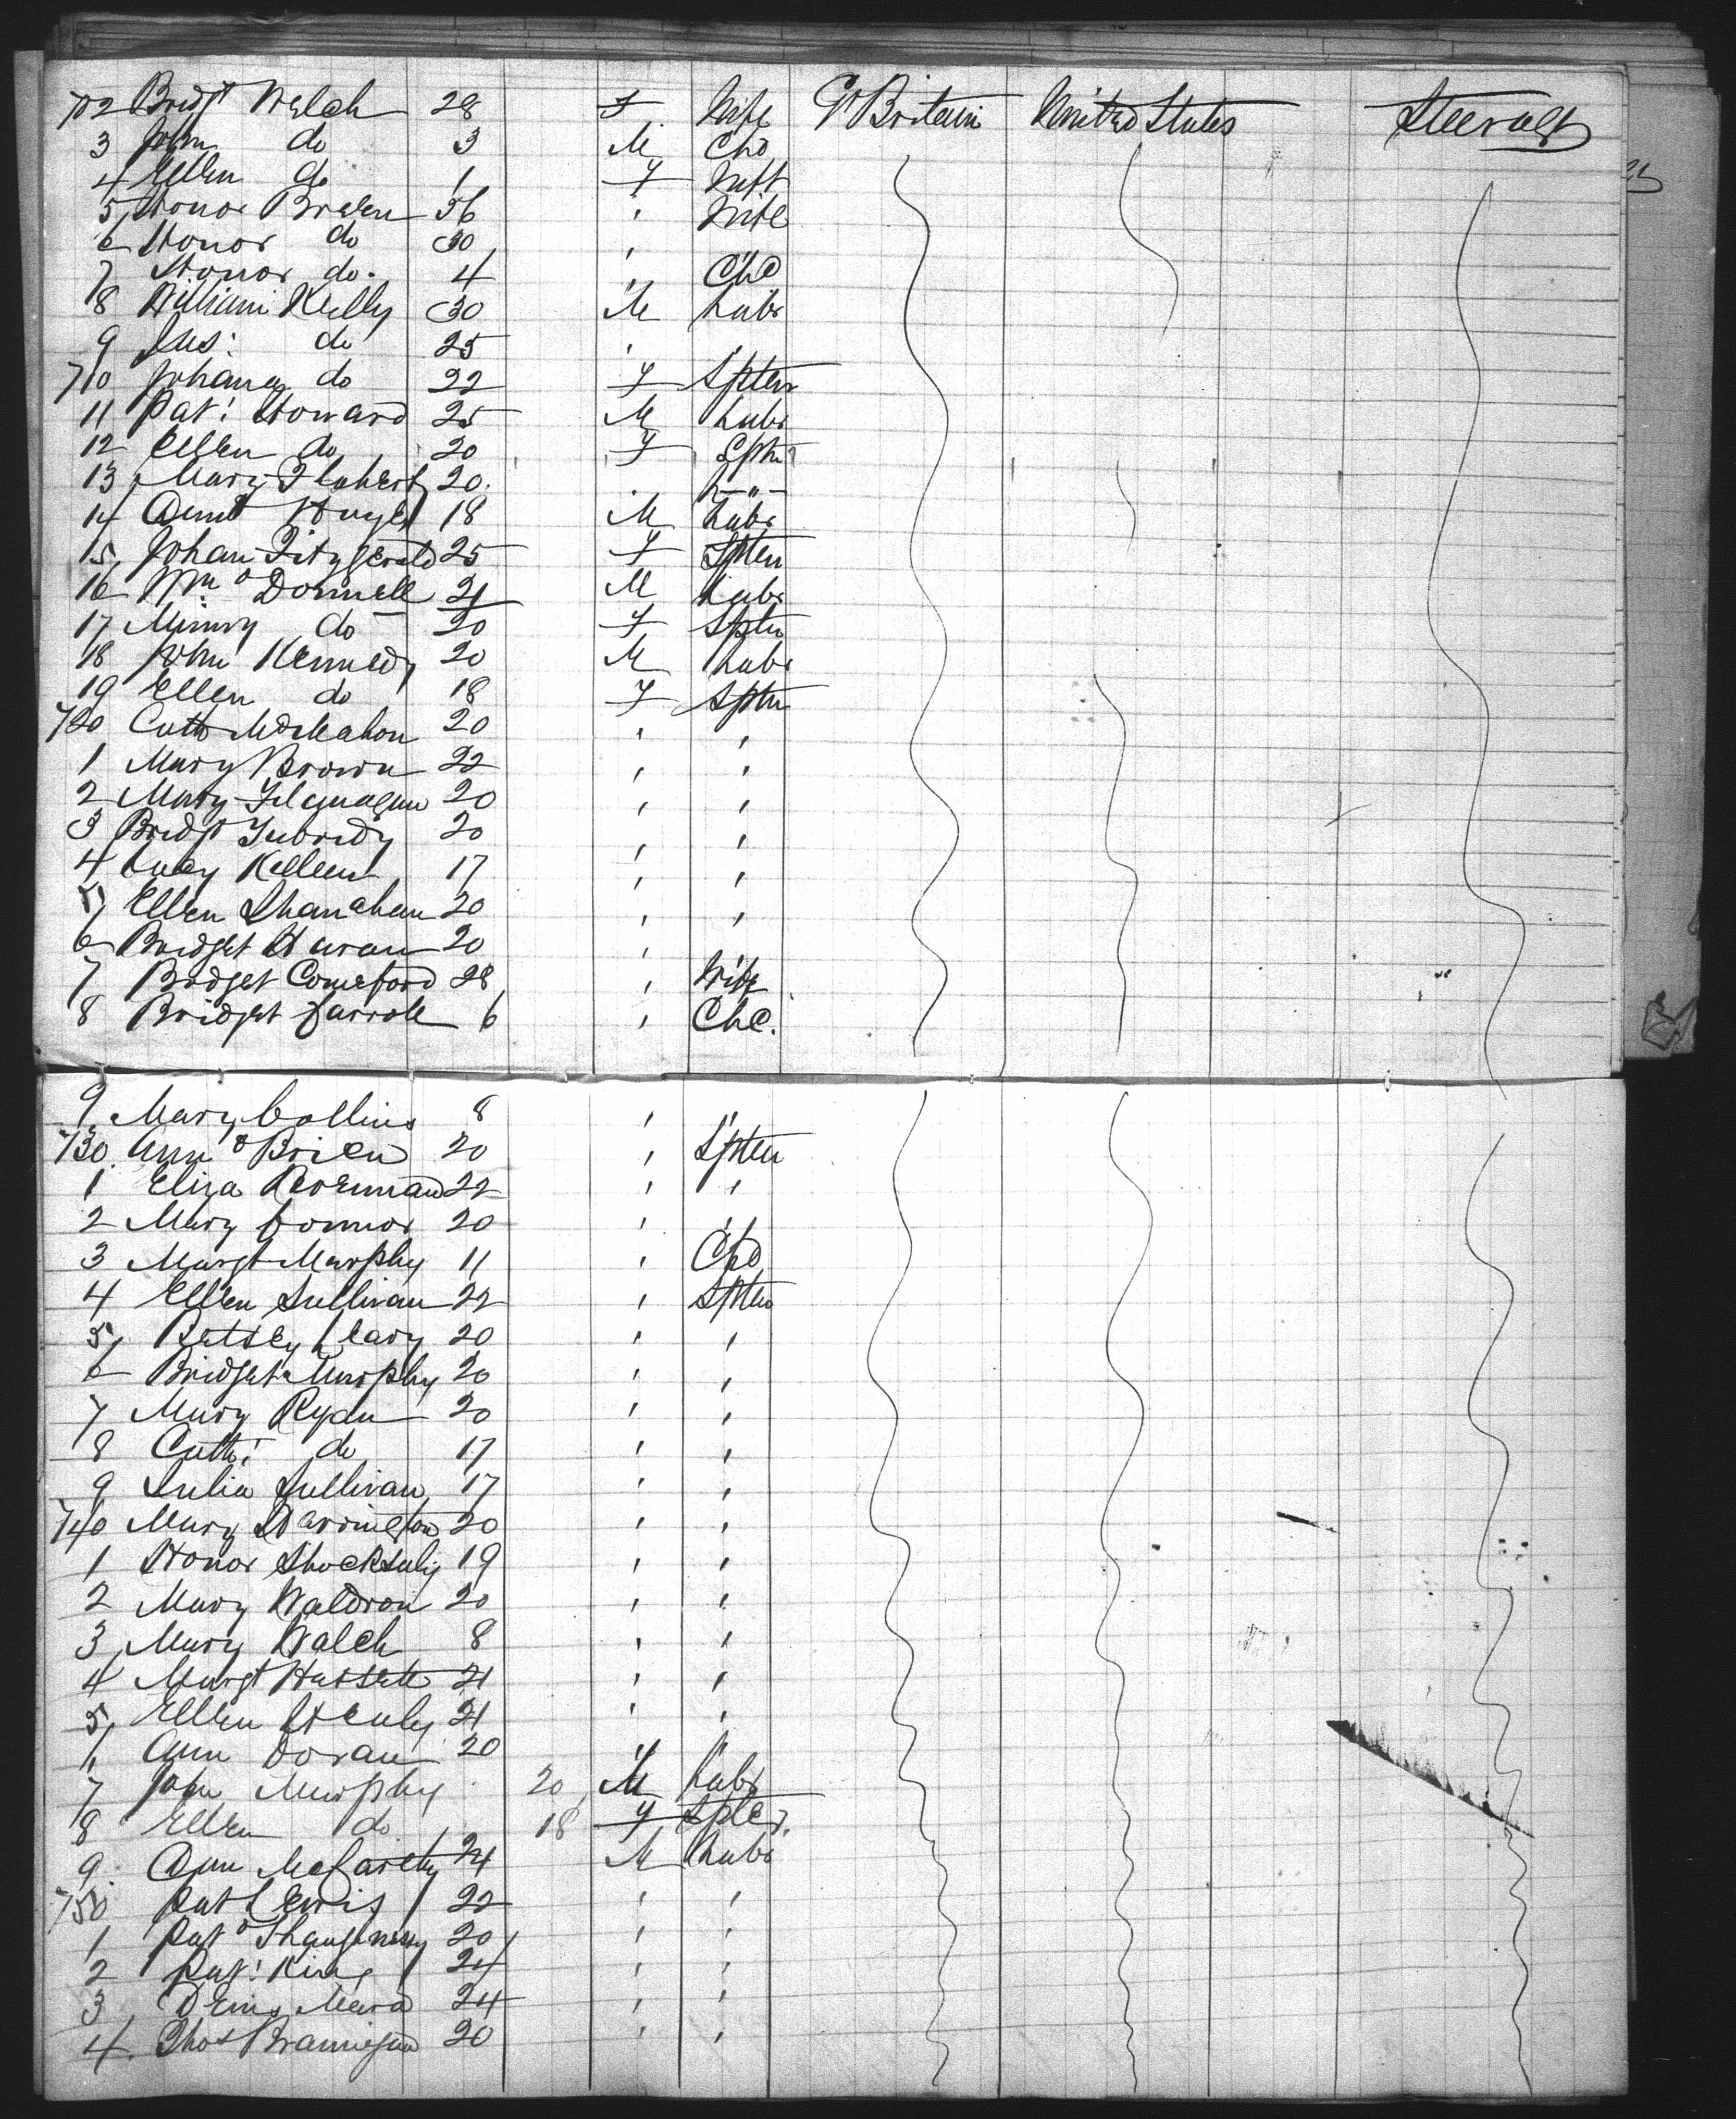 702 Bridgt Welch 28 F Wife Gt Britain United States Steerage
3 John do 3 M Chd
4 Ellen do 1 F Inft
5 Honor Breen 56 " Wife
6 Honor do 30 "
7 Honor do. 4 " Chd
8 William Kelly 30 M Labr
9 Jas: do 25 " "
710 Johana do 22 F Spter
11 Pat: Howard 25 M Labr
12 Ellen do 20 F Sptr
13 Mary Flahert 20. "
14 18 M Labr
15 Johan Fitzgerald 25 F Spten
16 Wm O Donnell 21 M Labr
17 do 20 F Sptr
18 John Kennedy 20 M Labr
19 Ellen do 18 F Sptr
720 Cath McMahon 20 " "
1 Mary Brown 22 " "
2 Mary Flanagan 20 " "
3 Bridgt Tubridy 20 " "
4 Killeen 17 " "
5 Ellen Shanahan 20 " "
6 Bridget Haran 20 "
7 Bridget Comeford 28 " Wife
8 Bridget Carroll 6 " Chd.
9 Mary Collins 8 " "
730 Ann O Brien 20 " Spten
1 Eliza 22 " "
2 Mary Connor 20 " "
3 Margt Murphy 11 " Chd
4 Ellen Sullivan 22 " Spter
5 Betsey Leary 20 " "
6 Bridget Murphy 20 " "
7 Mary Ryan 20 " "
8 Cath: do 17 " "
9 Julia Sullivan 17 " "
740 Mary Harrington 20 " "
1 Honor 19 " "
2 Mary Waldron 20 " "
3 Mary Walch 8 " "
4 Margt Hassett 21 " "
5 Ellen Healy 21 " "
Ann Doran 20 " "
7 John Murphy 20 M Labr
8 Ellen do 18 F Spter.
9 McCarthy 24 M Labr
750 Pat Lewis 22 " "
1 Pat O 20 " "
2 Pat: King 24 " "
3 Denis Mara 24 " "
4 Thos Brannigan 20 " "